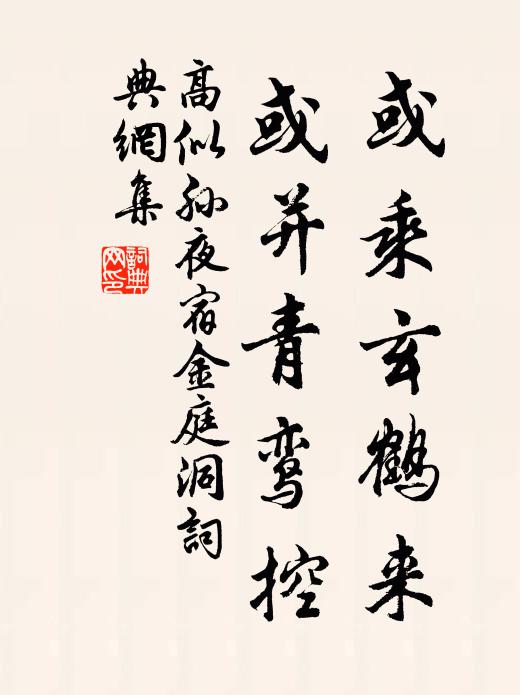 或乘玄鹤来
或并青鸾控
高似孙夜宿金庭洞詞
典網集
詞典
网印